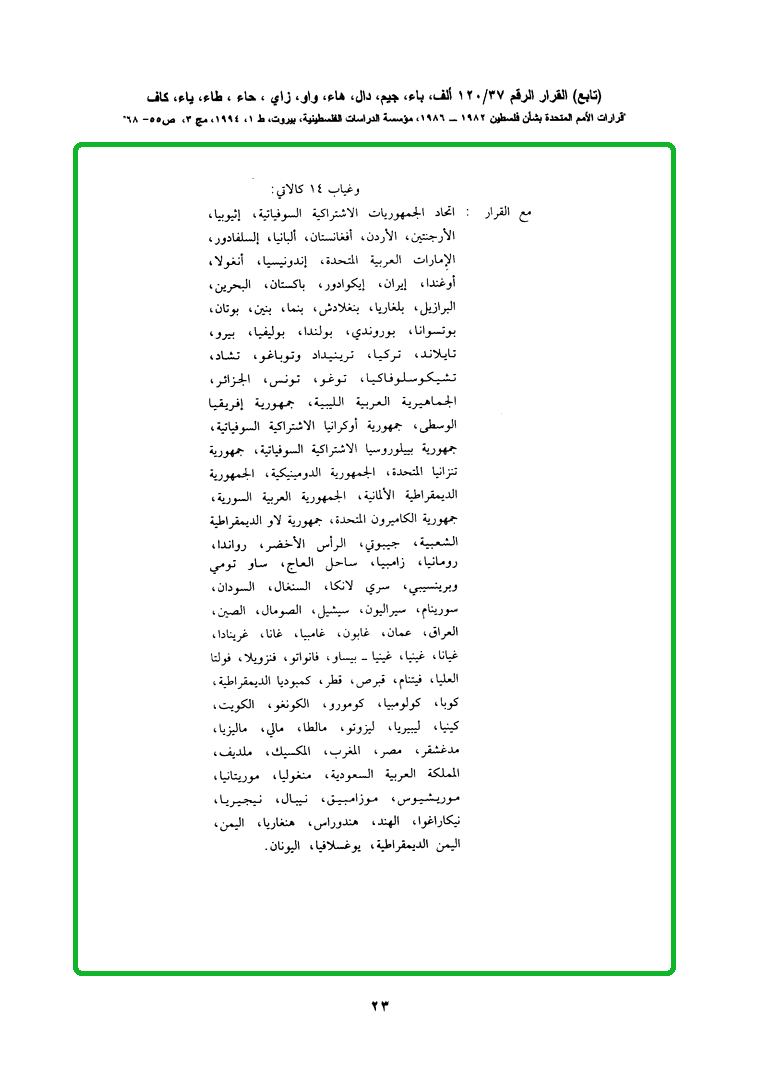 (تابع) القرار الرقم ١٢٠/٣٧ ألف، باء، جيم، دال، هاء، واو، زاي ، حاء ، طاء، ياء، كاف
"قرارات الأمم المتحدة بشأن فلسطين ١٩٨٢ ــ ١٩٨٦، مؤسسة الدراسات الفلسطينية، بيروت، ط ١، ١٩٩٤، مج ٣، ص٥٥- ٦٨"
وغياب ١٤ كالآتي:
مع القرار : اتحاد الجمهوريات الاشتراكية السوفياتية، إثيوبيا،
الأرجنتين، الأردن، أفغانستان، ألبانيا، إلسلفادور،
الإمارات العربية المتحدة، إندونيسيا، أنغولا،
أوغندا، إيران، إيكوادور، باكستان، البحرين،
البرازيل، بلغاريا، بنغلادش، بنما، بنين، بوتان،
بوتسوانا، بوروندي، بولندا، بوليفيا، بيرو،
تايلاند، تركيا، ترينيداد وتوباغو، تشاد،
تشيكوسلوفاكيا، توغو، تونس، الجزائر،
الجماهيرية العربية الليبية، جمهورية إفريقيا
الوسطى، جمهورية أوكرانيا الاشتراكية السوفياتية،
جمهورية بييلوروسيا الاشتراكية السوفياتية، جمهورية
تنزانيا المتحدة، الجمهورية الدومينيكية، الجمهورية
الديمقراطية الألمانية، الجمهورية العربية السورية،
جمهورية الكاميرون المتحدة، جمهورية لاو الديمقراطية
الشعبية، جيبوتي، الرأس الأخضر، رواندا،
رومانيا، زامبيا، ساحل العاج، ساو تومي
وبرينسيبي، سري لانكا، السنغال، السودان،
سورينام، سيراليون، سيشيل، الصومال، الصين،
العراق، عمان، غابون، غامبيا، غانا، غرينادا،
غيانا، غينيا، غينيا ـ بيساو، فانواتو، فنزويلا، فولتا
العليا، فيتنام، قبرص، قطر، كمبوديا الديمقراطية،
كوبا، كولومبيا، كومورو، الكونغو، الكويت،
كينيا، ليبيريا، ليزوتو، مالطا، مالي، ماليزيا،
مدغشقر، مصر، المغرب، المكسيك، ملديف،
المملكة العربية السعودية، منغوليا، موريتانيا،
موريشيوس، موزامبيق، نيبال، نيجيريا،
نيكاراغوا، الهند، هندوراس، هنغاريا، اليمن،
اليمن الديمقراطية، يوغسلافيا، اليونان.
٢٣